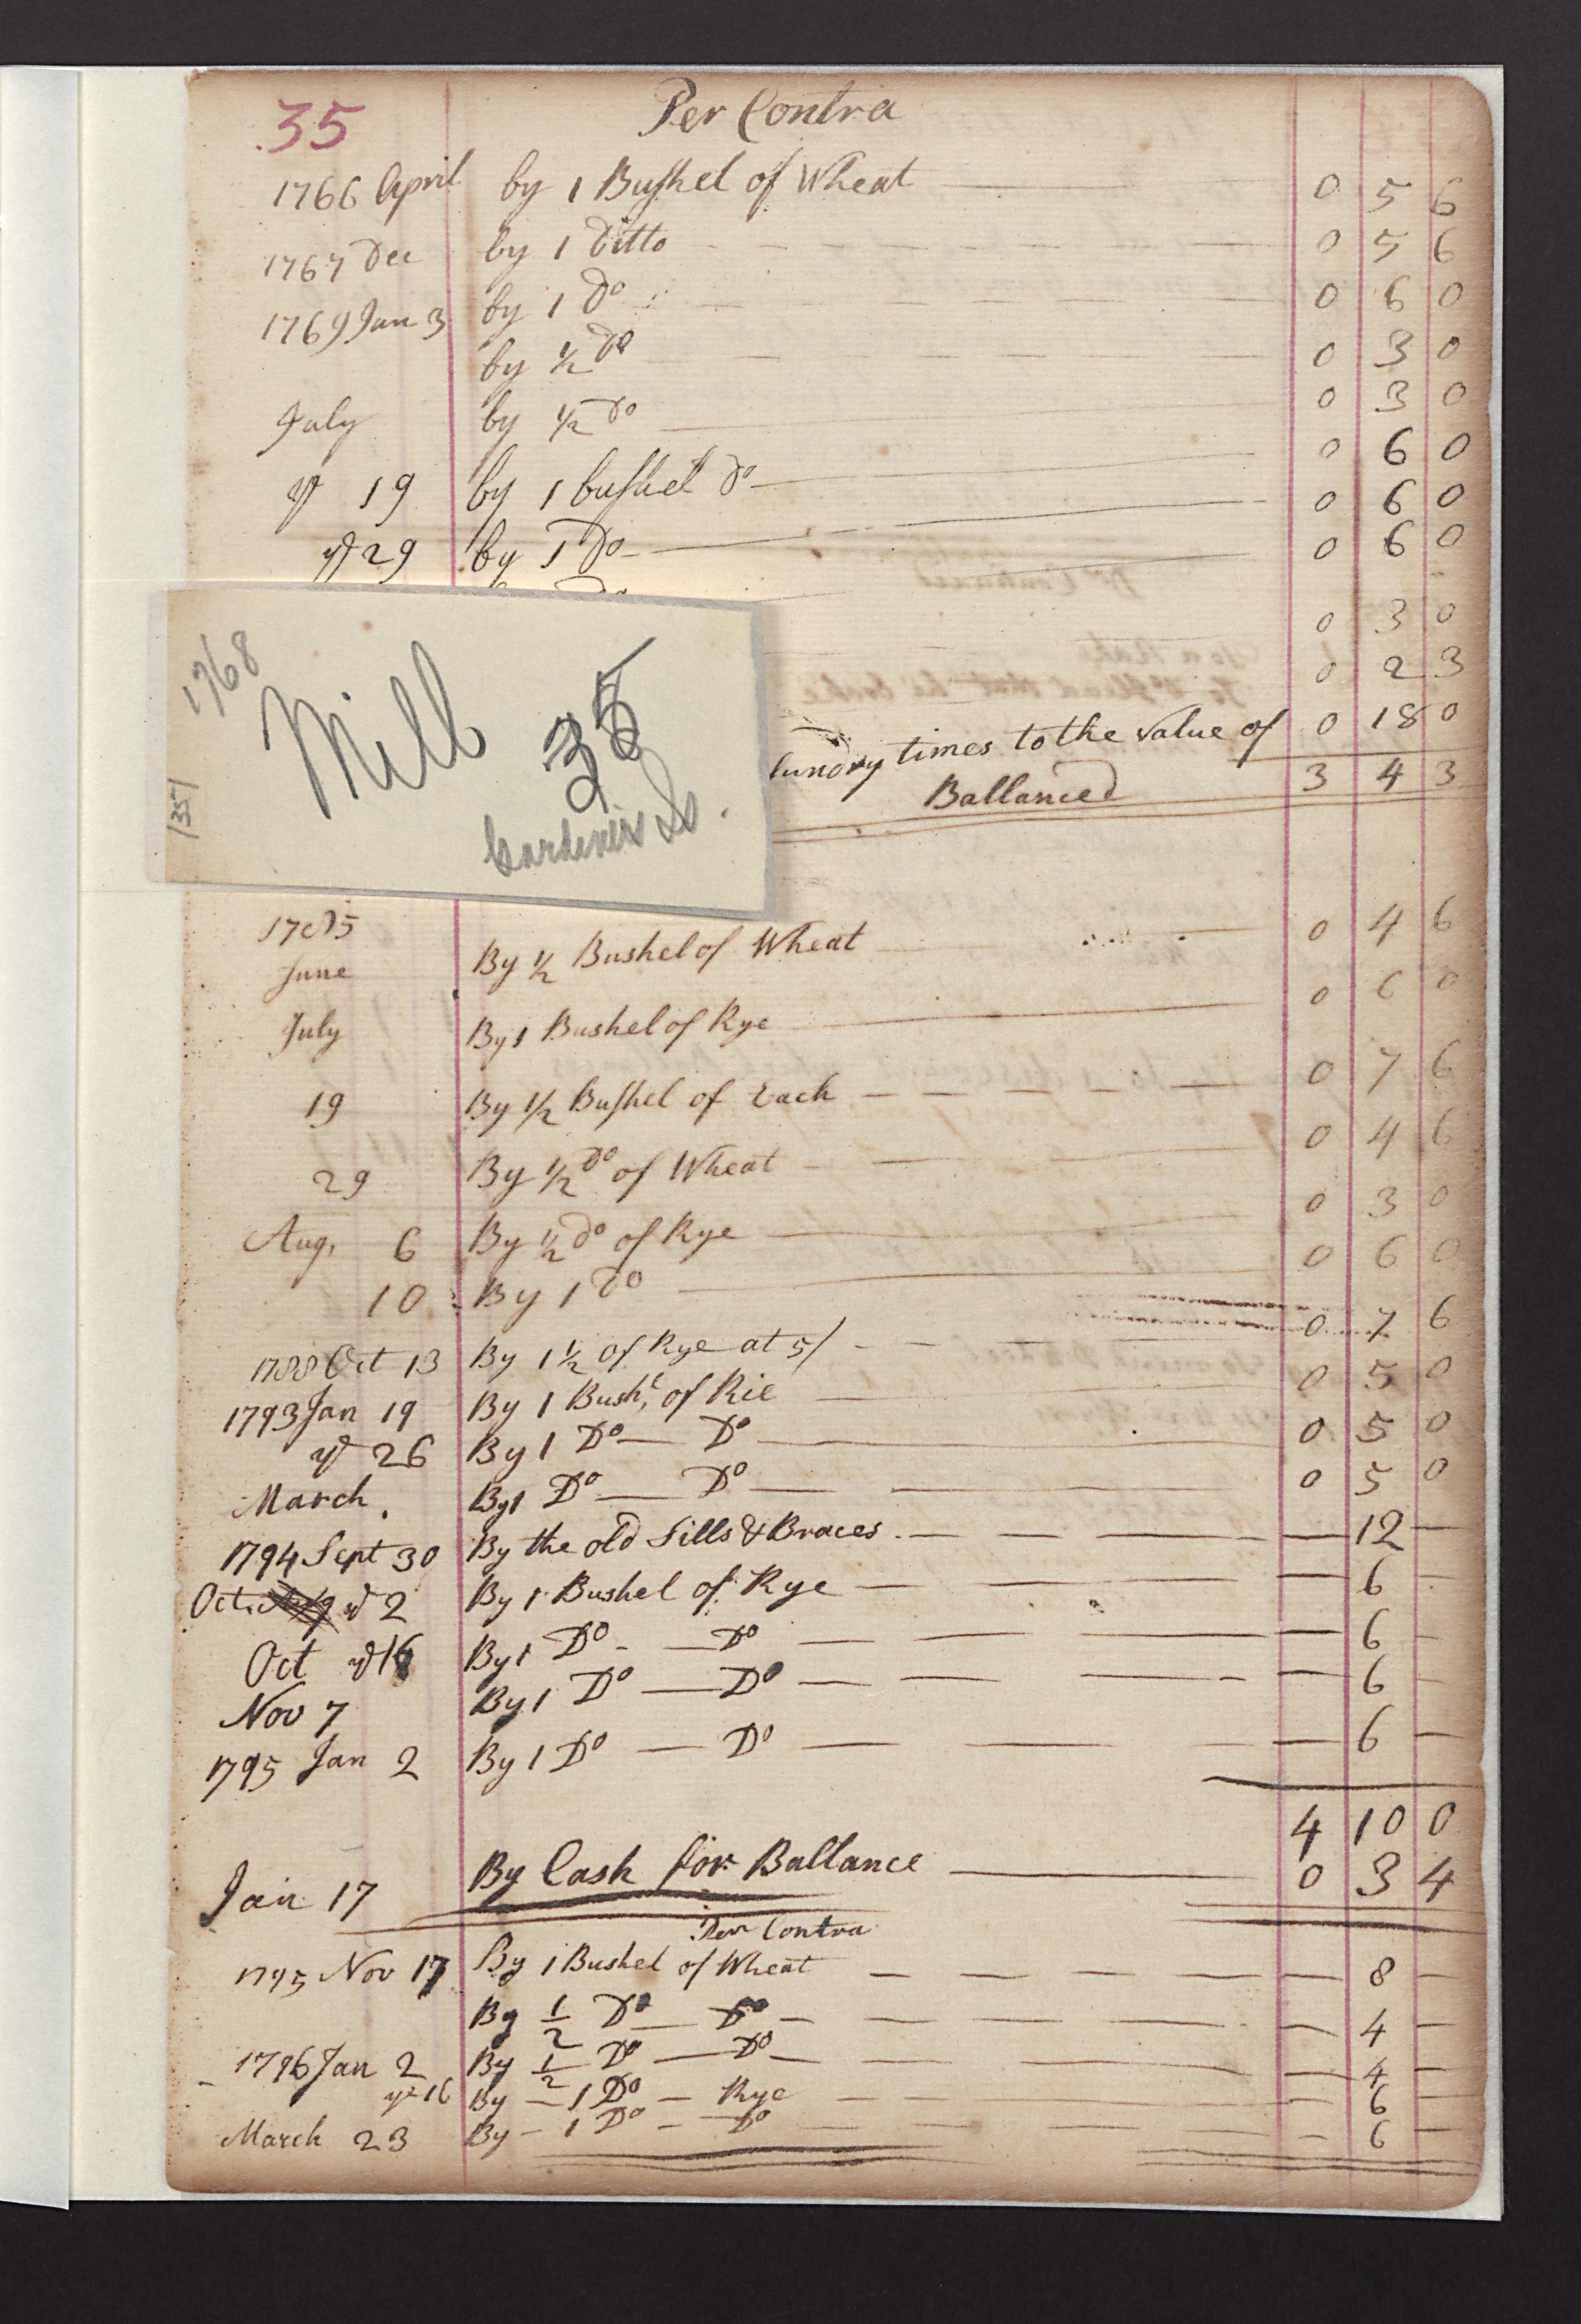 35 Per Contra
1766 April by 1 Bushel of Wheat 0 5 6
1767 Dec by 1 Ditto 0 5 6
1769 Jan 3 by 1 Do 0 6 0
by ½ Do 0 3 0
July by ½ Do 0 3 0
ye 19 by 1 bushel Do 0 6 0
ye 29 by 1 Do 0 6 0
0 6 0
0 3 0
0 2 3
sundry times to the value of 0 18 0
Ballanced 3 4 3
1768
Mill 35
Gardiners Is.
1351
June By ½ Bushel of Wheat 0 4 6
July By 1 Bushel of Rye 0 6 0
19 By ½ Bushel of Each 0 7 6
29 By ½ Do of Wheat 0 4 6
Aug, 6 By ½ Do of Rye 0 3 0
10 By 1 Do 0 6 0
1788 Oct 13 By 1 ½ of Rye at 5/ 0 7 6
1793 Jan 19 By 1 Bushl, of Rie 0 5 0
ye 26 By 1 Do — Do 0 5 0
March. By 1 Do — Do 0 5 0
1794 Sept 30 By the old Sills & Braces — 12 —
Oct. ye 2 By 1 Bushel of Rye 6
Oct ye 16 By 1 Do — Do — 6 —
Nov 7 By 1 Do — Do — 6 —
1795 Jan 2 By 1 Do — Do — 6 —
4 10 0
Jan 17 By Cash for Ballance 0 3 4
Per Contra
1795 Nov 17 By 1 Bushel of Wheat — 8 —
By ½ Do — Do — 4 —
1796 Jan 2 By ½ Do — Do — 4 —
ye 16 By — 1 Do — Rye — 6 —
March 23 By — 1 Do — Do — 6 —